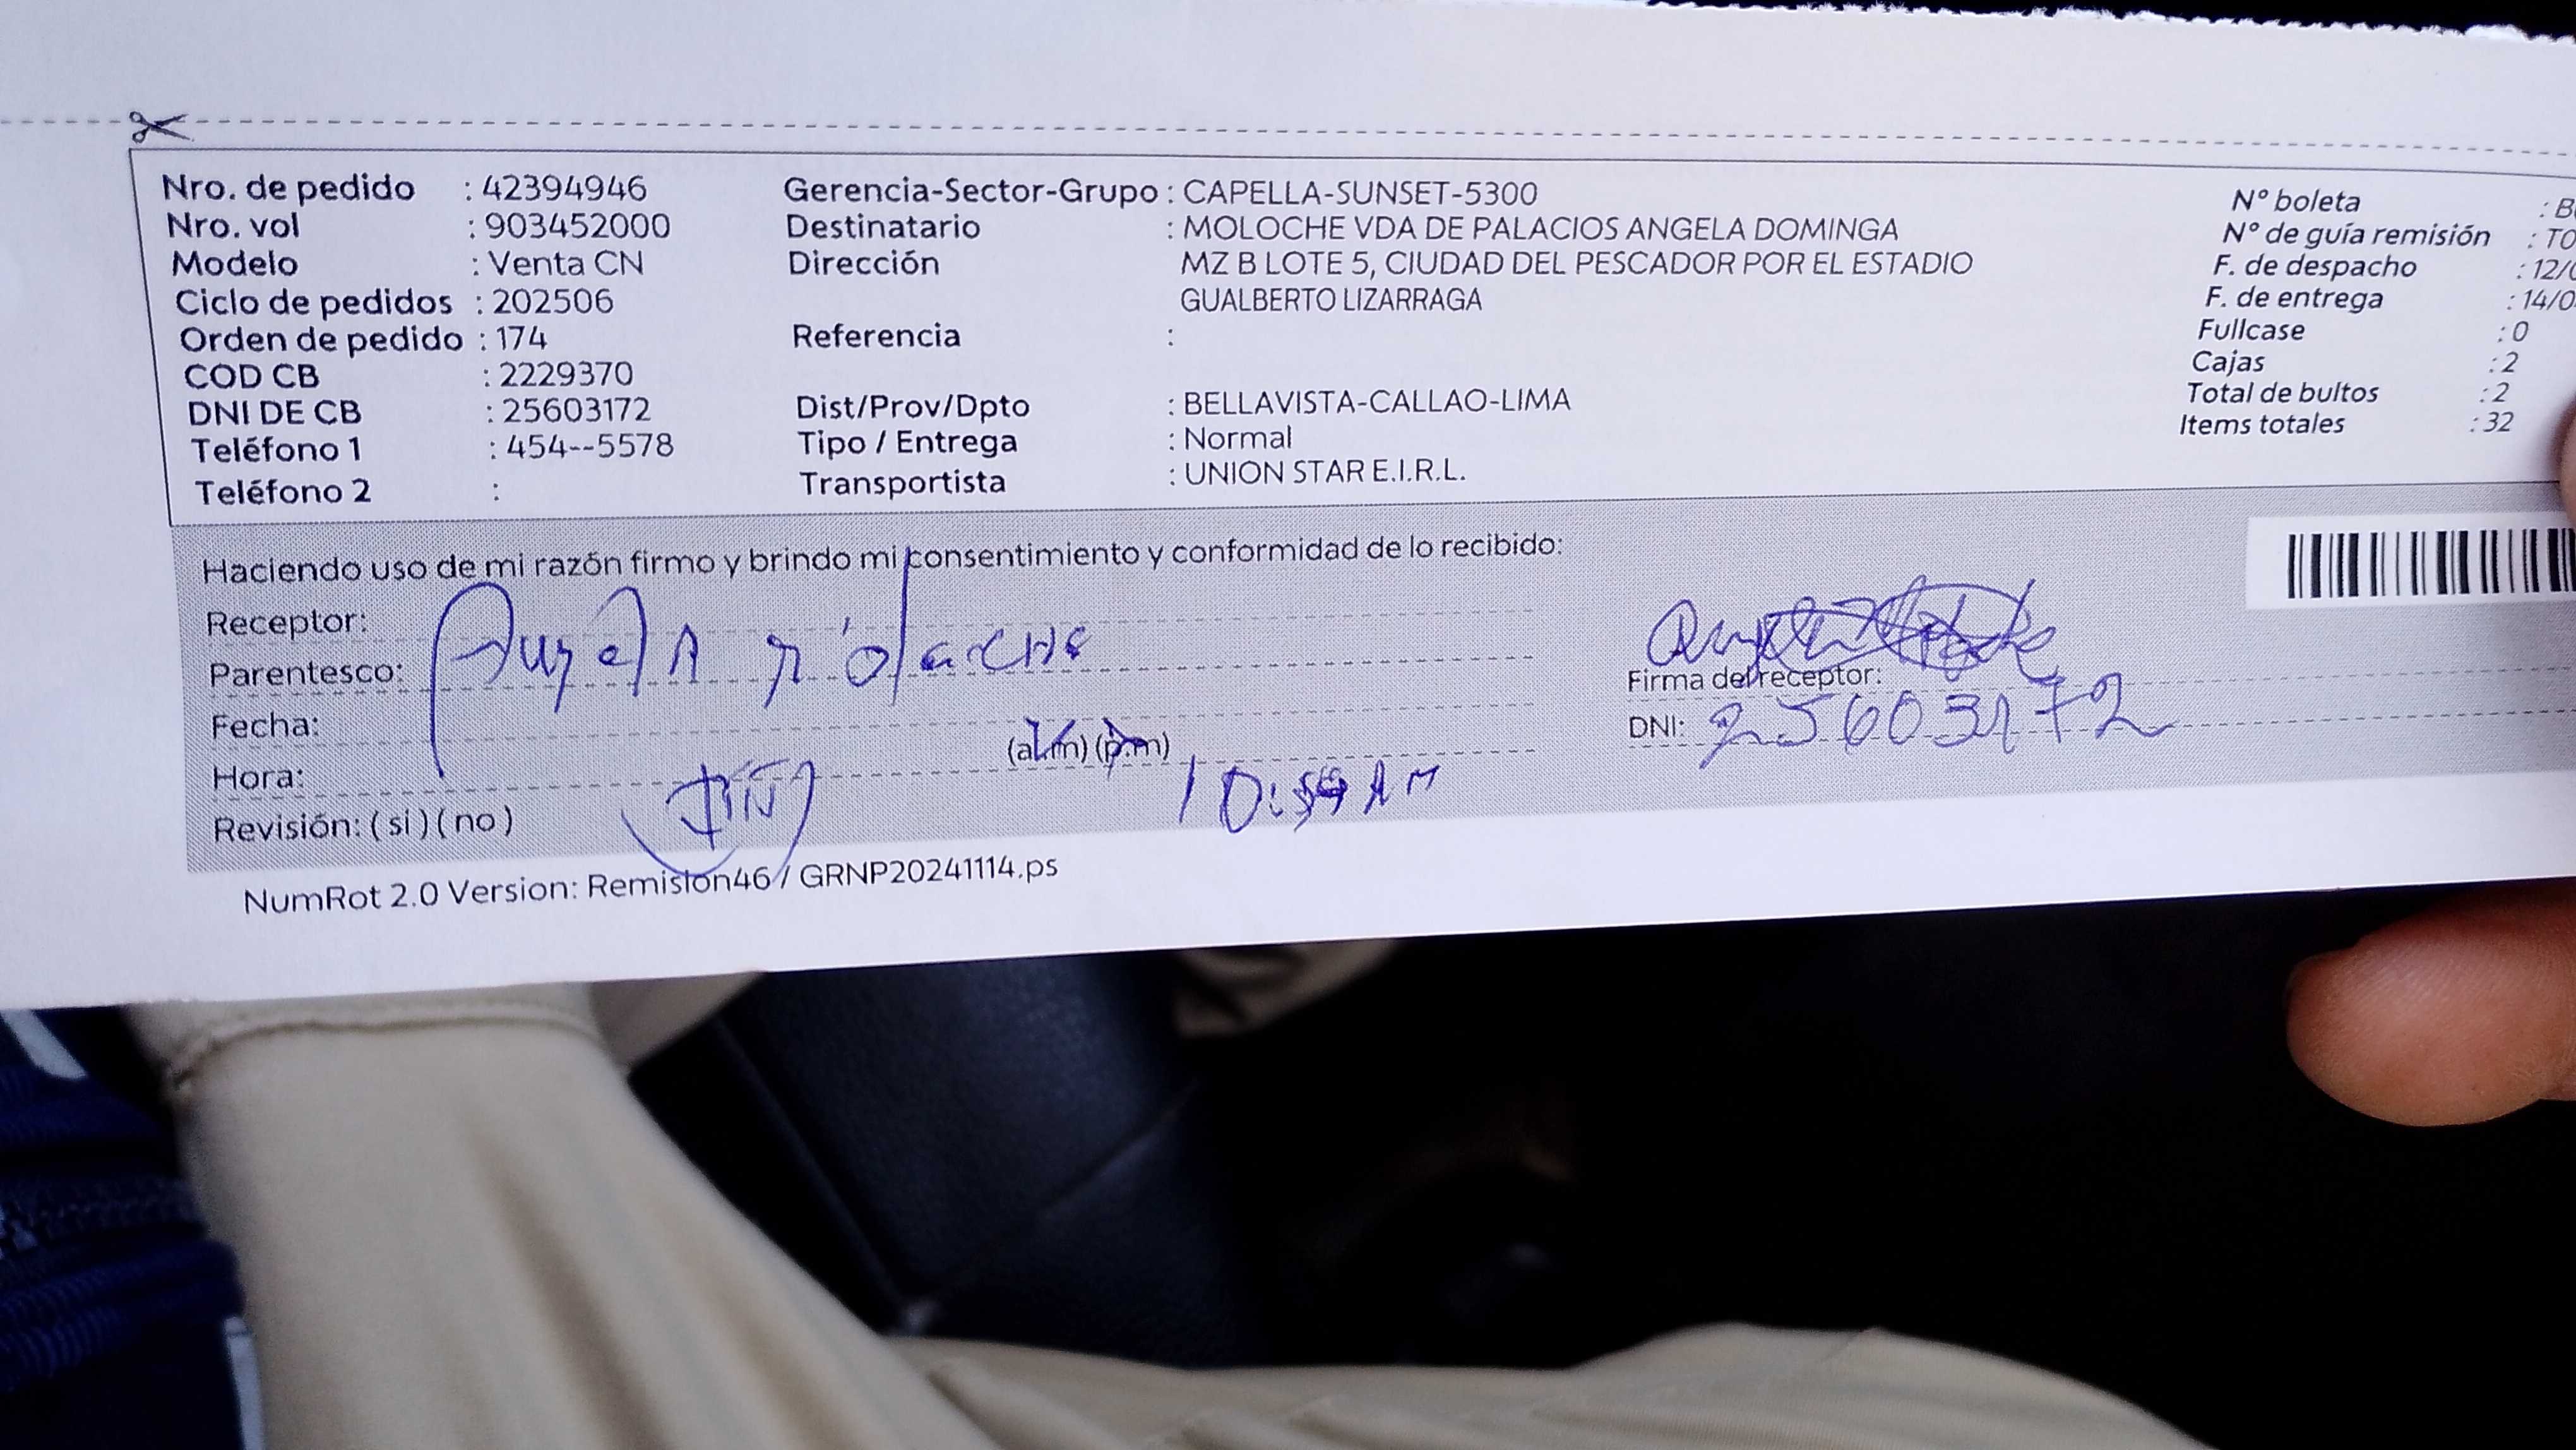 Nro. de pedido : 42394946
Nro. vol : 903452000
Modelo : Venta CN
Ciclo de pedidos : 202506
Orden de pedido : 174
COD CB : 2229370
DNI DE CB : 25603172
Teléfono 1 : 454--5578
Teléfono 2 :
Gerencia-Sector-Grupo : CAPELLA-SUNSET-5300
Destinatario : MOLOCHE VDA DE PALACIOS ANGELA DOMINGA
Dirección MZ B LOTE 5, CIUDAD DEL PESCADOR POR EL ESTADIO
GUALBERTO LIZARRAGA
Referencia :
Dist/Prov/Dpto : BELLAVISTA-CALLAO-LIMA
Tipo / Entrega : Normal
Transportista : UNION STAR E.I.R.L.
N° boleta : B
N° de guía remisión : T0
F. de despacho : 12/0
F. de entrega : 14/0
Fullcase : 0
Cajas : 2
Total de bultos : 2
Items totales : 32
Haciendo uso de mi razón firmo y brindo mi consentimiento y conformidad de lo recibido:
Receptor:
Parentesco:
Fecha:
Hora: (a.m) (p.m)
10: AM
Revisión: ( si ) ( no )
Firma del receptor:
DNI: 25603172
NumRot 2.0 Version: Remision46 / GRNP20241114.ps